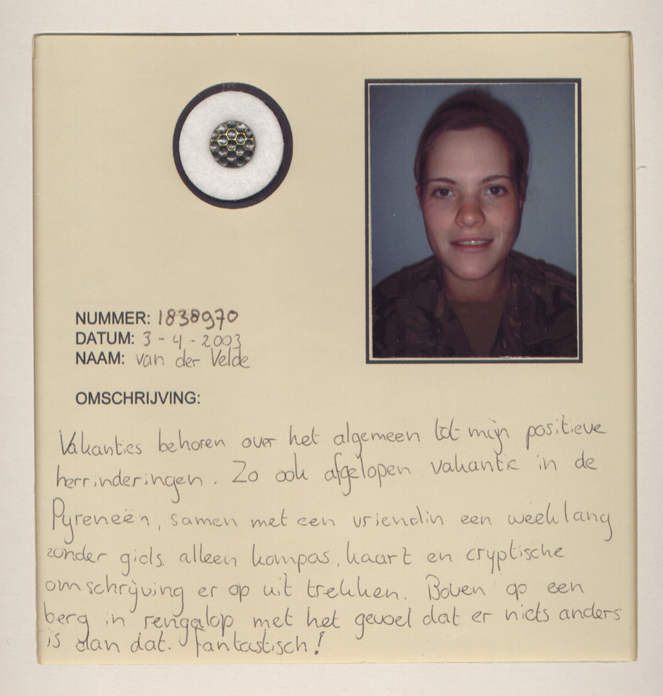 NUMMER: 1838970
DATUM: 3-4-2003
NAAM: van der Velde
OMSCHRIJVING:
Vakanties behoren over het algemeen tot mijn positieve
herrinderingen. Zo ook afgelopen vakantie in de
Pyreneën, samen met een vriendin een week lang
zonder gids, alleen kompas, kaart en cryptische
omschrijving er op uit trekken. Boven op een
berg in rengalop met het gevoel dat er niets anders
is dan dat. fantastisch!